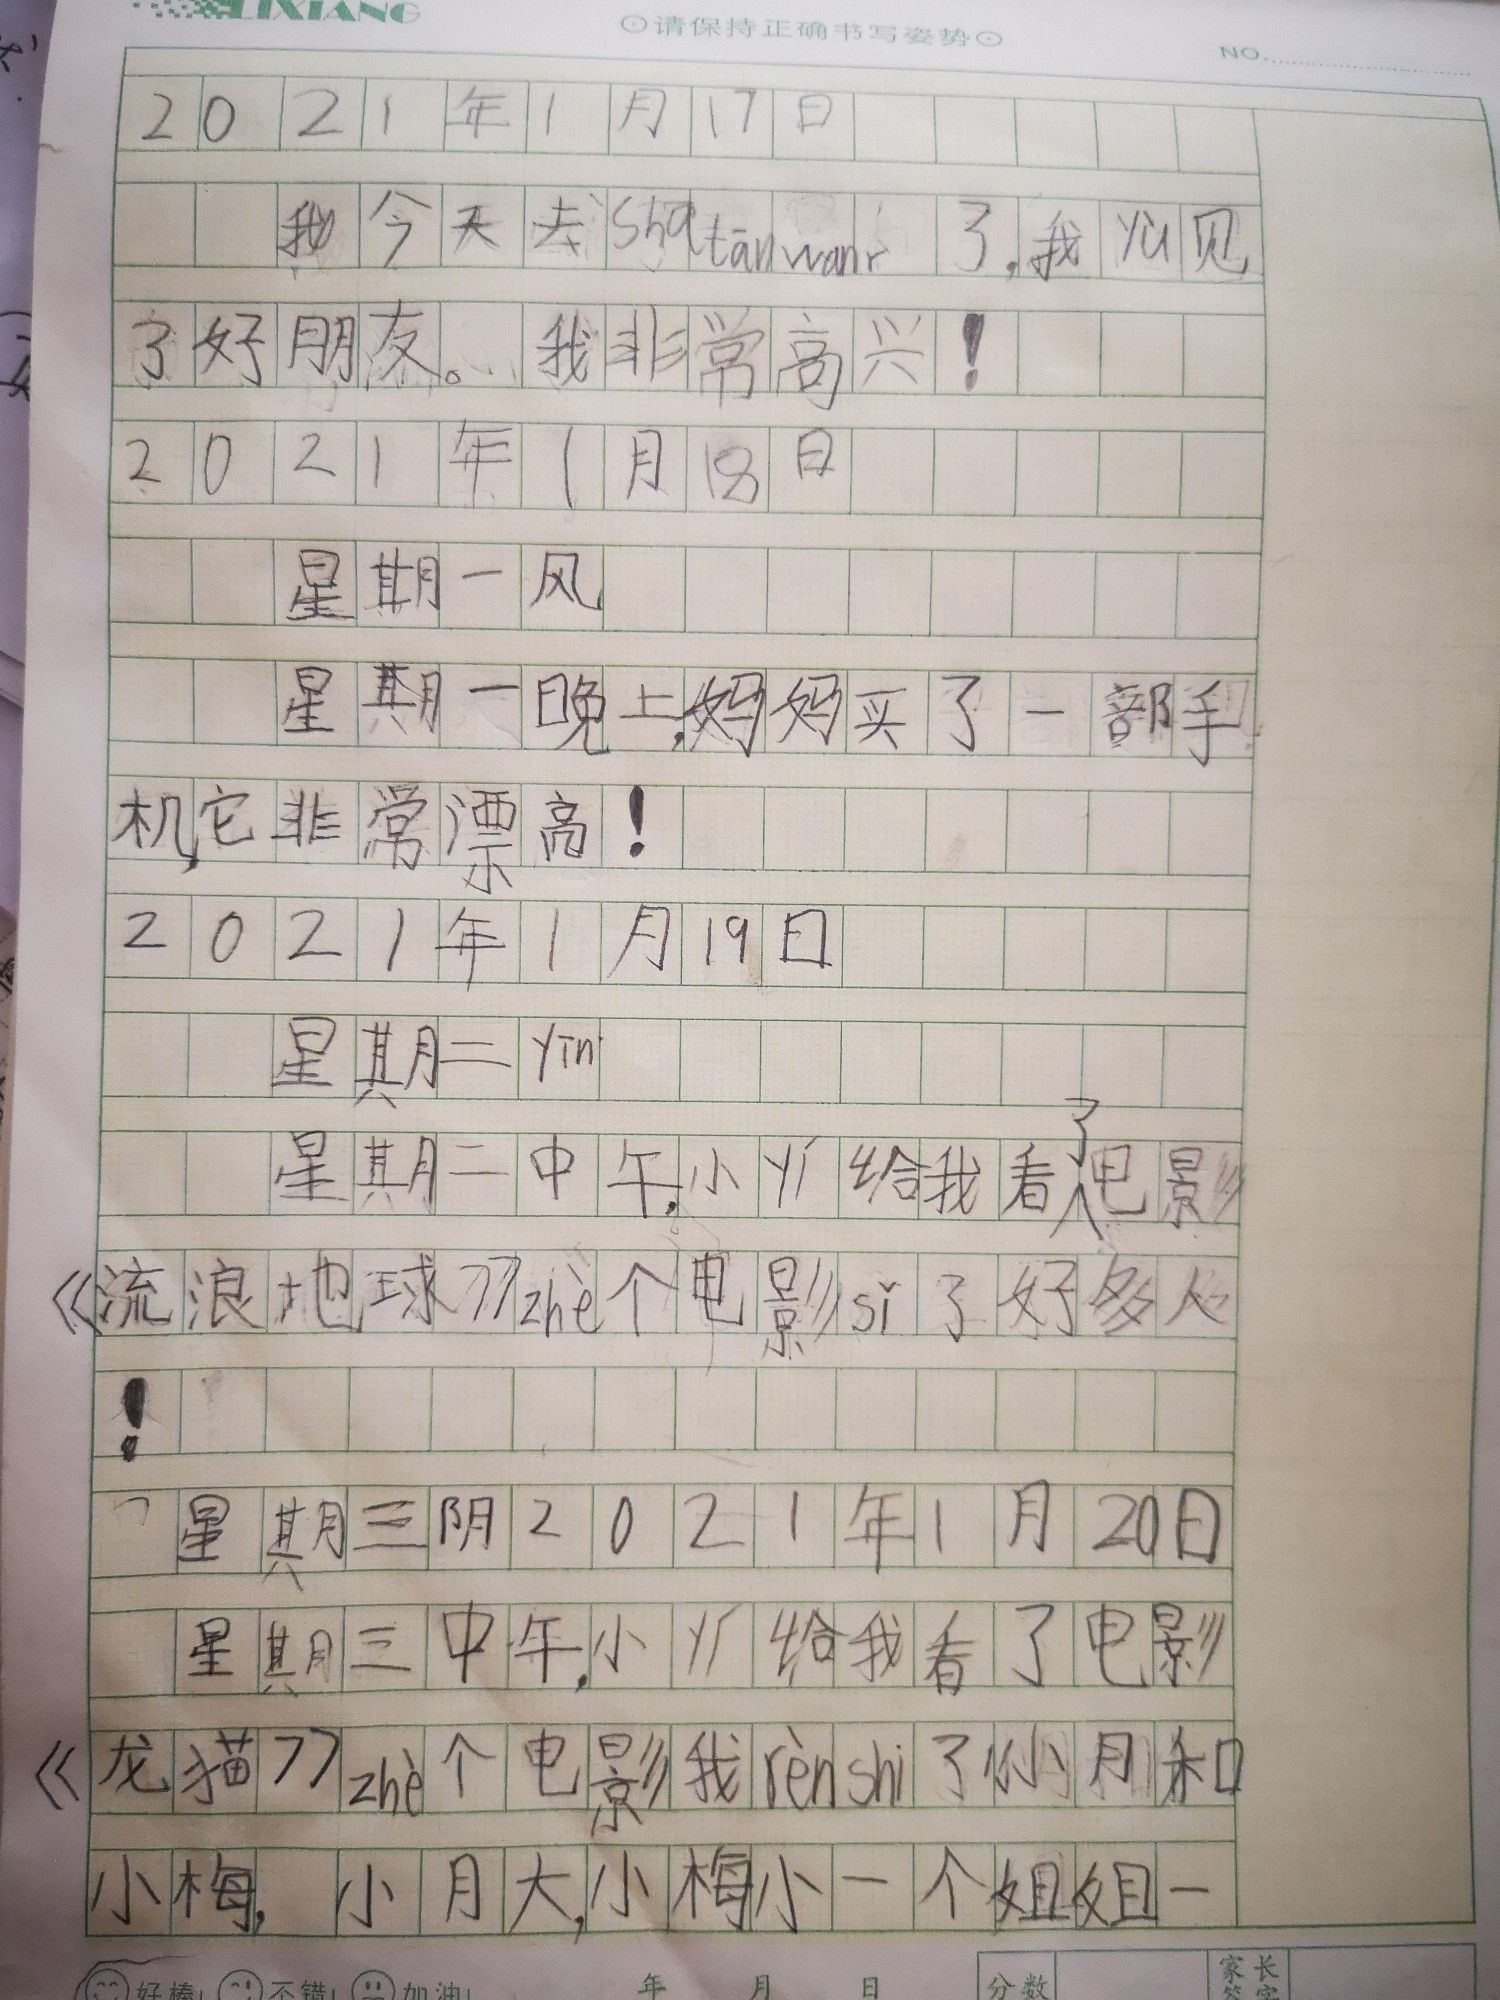 LIXIANG
⊙请保持正确书写姿势⊙
NO.
2021年1月17日
我今天去shatānwanr了,我yù见
了好朋友。我非常高兴!
2021年1月18日
星期一风
星期一晚上,妈妈买了一部手
机,它非常漂高!
2021年1月19日
星期二yīn
星期二中午,小yí给我看了电影
《流浪地球》zhè个电影sǐ了好多人
!
星期三阴2021年1月20日
星期三中午,小yí给我看了电影
《龙猫》zhè个电影我rènshi了小月和
小梅,小月大,小梅小一个姐姐一
好棒! 不错! 加油!
年 月 日
分数
家长
签字